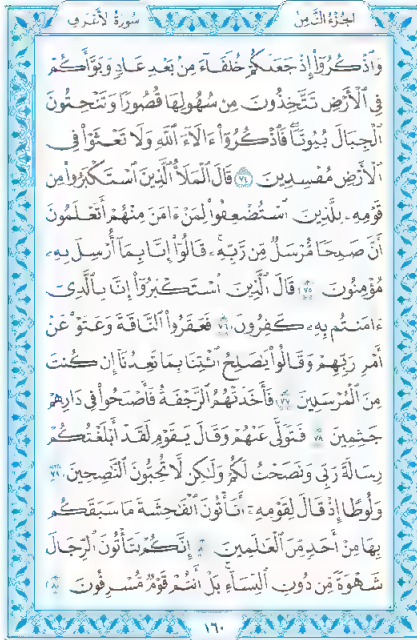 سُورَةُ الأَعْرَافِ
الجُزْءُ الثَّامِنُ
وَاذْكُرُوا إِذْ جَعَلَكُمْ خُلَفَاءَ مِنْ بَعْدِ عَادٍ وَبَوَّأَكُمْ
فِي الْأَرْضِ تَتَّخِذُونَ مِنْ سُهُولِهَا قُصُورًا وَتَنْحِتُونَ
الْجِبَالَ بُيُوتًا فَاذْكُرُوا ءَالَاءَ اللَّهِ وَلَا تَعْثَوْا فِي
الْأَرْضِ مُفْسِدِينَ ٧٤ قَالَ الْمَلَأُ الَّذِينَ اسْتَكْبَرُوا مِنْ
قَوْمِهِ لِلَّذِينَ اسْتُضْعِفُوا لِمَنْ ءَامَنَ مِنْهُمْ أَتَعْلَمُونَ
أَنَّ صَلِحًا مُرْسَلٌ مِنْ رَبِّهِ قَالُوا إِنَّا بِمَا أُرْسِلَ بِهِ
مُؤْمِنُونَ ٧٥ قَالَ الَّذِينَ اسْتَكْبَرُوا إِنَّا بِالَّذِي
ءَامَنْتُمْ بِهِ كَفِرُونَ ٧٦ فَعَقَرُوا النَّاقَةَ وَعَتَوْا عَنْ
أَمْرِ رَبِّهِمْ وَقَالُوا يَصَلِحُ ائْتِنَا بِمَا تَعِدُنَا إِنْ كُنْتَ
مِنَ الْمُرْسَلِينَ ٧٧ فَأَخَذَتْهُمُ الرَّجْفَةُ فَأَصْبَحُوا فِي دَارِهِمْ
جَثِمِينَ ٧٨ فَتَوَلَّى عَنْهُمْ وَقَالَ يَقَوْمِ لَقَدْ أَبْلَغْتُكُمْ
رِسَالَةَ رَبِّي وَنَصَحْتُ لَكُمْ وَلَكِنْ لَا تُحِبُّونَ النَّصِحِينَ ٧٩
وَلُوطًا إِذْ قَالَ لِقَوْمِهِ أَتَأْتُونَ الْفَحِشَةَ مَا سَبَقَكُمْ
بِهَا مِنْ أَحَدٍ مِنَ الْعَلَمِينَ ٨٠ إِنَّكُمْ لَتَأْتُونَ الرِّجَالَ
شَهْوَةً مِنْ دُونِ النِّسَاءِ بَلْ أَنْتُمْ قَوْمٌ مُسْرِفُونَ ٨١
١٦٠